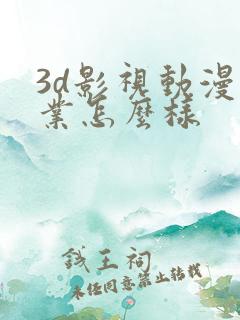 3d影視動漫
業怎麼樣
錢王祠
未經同意禁止轉載